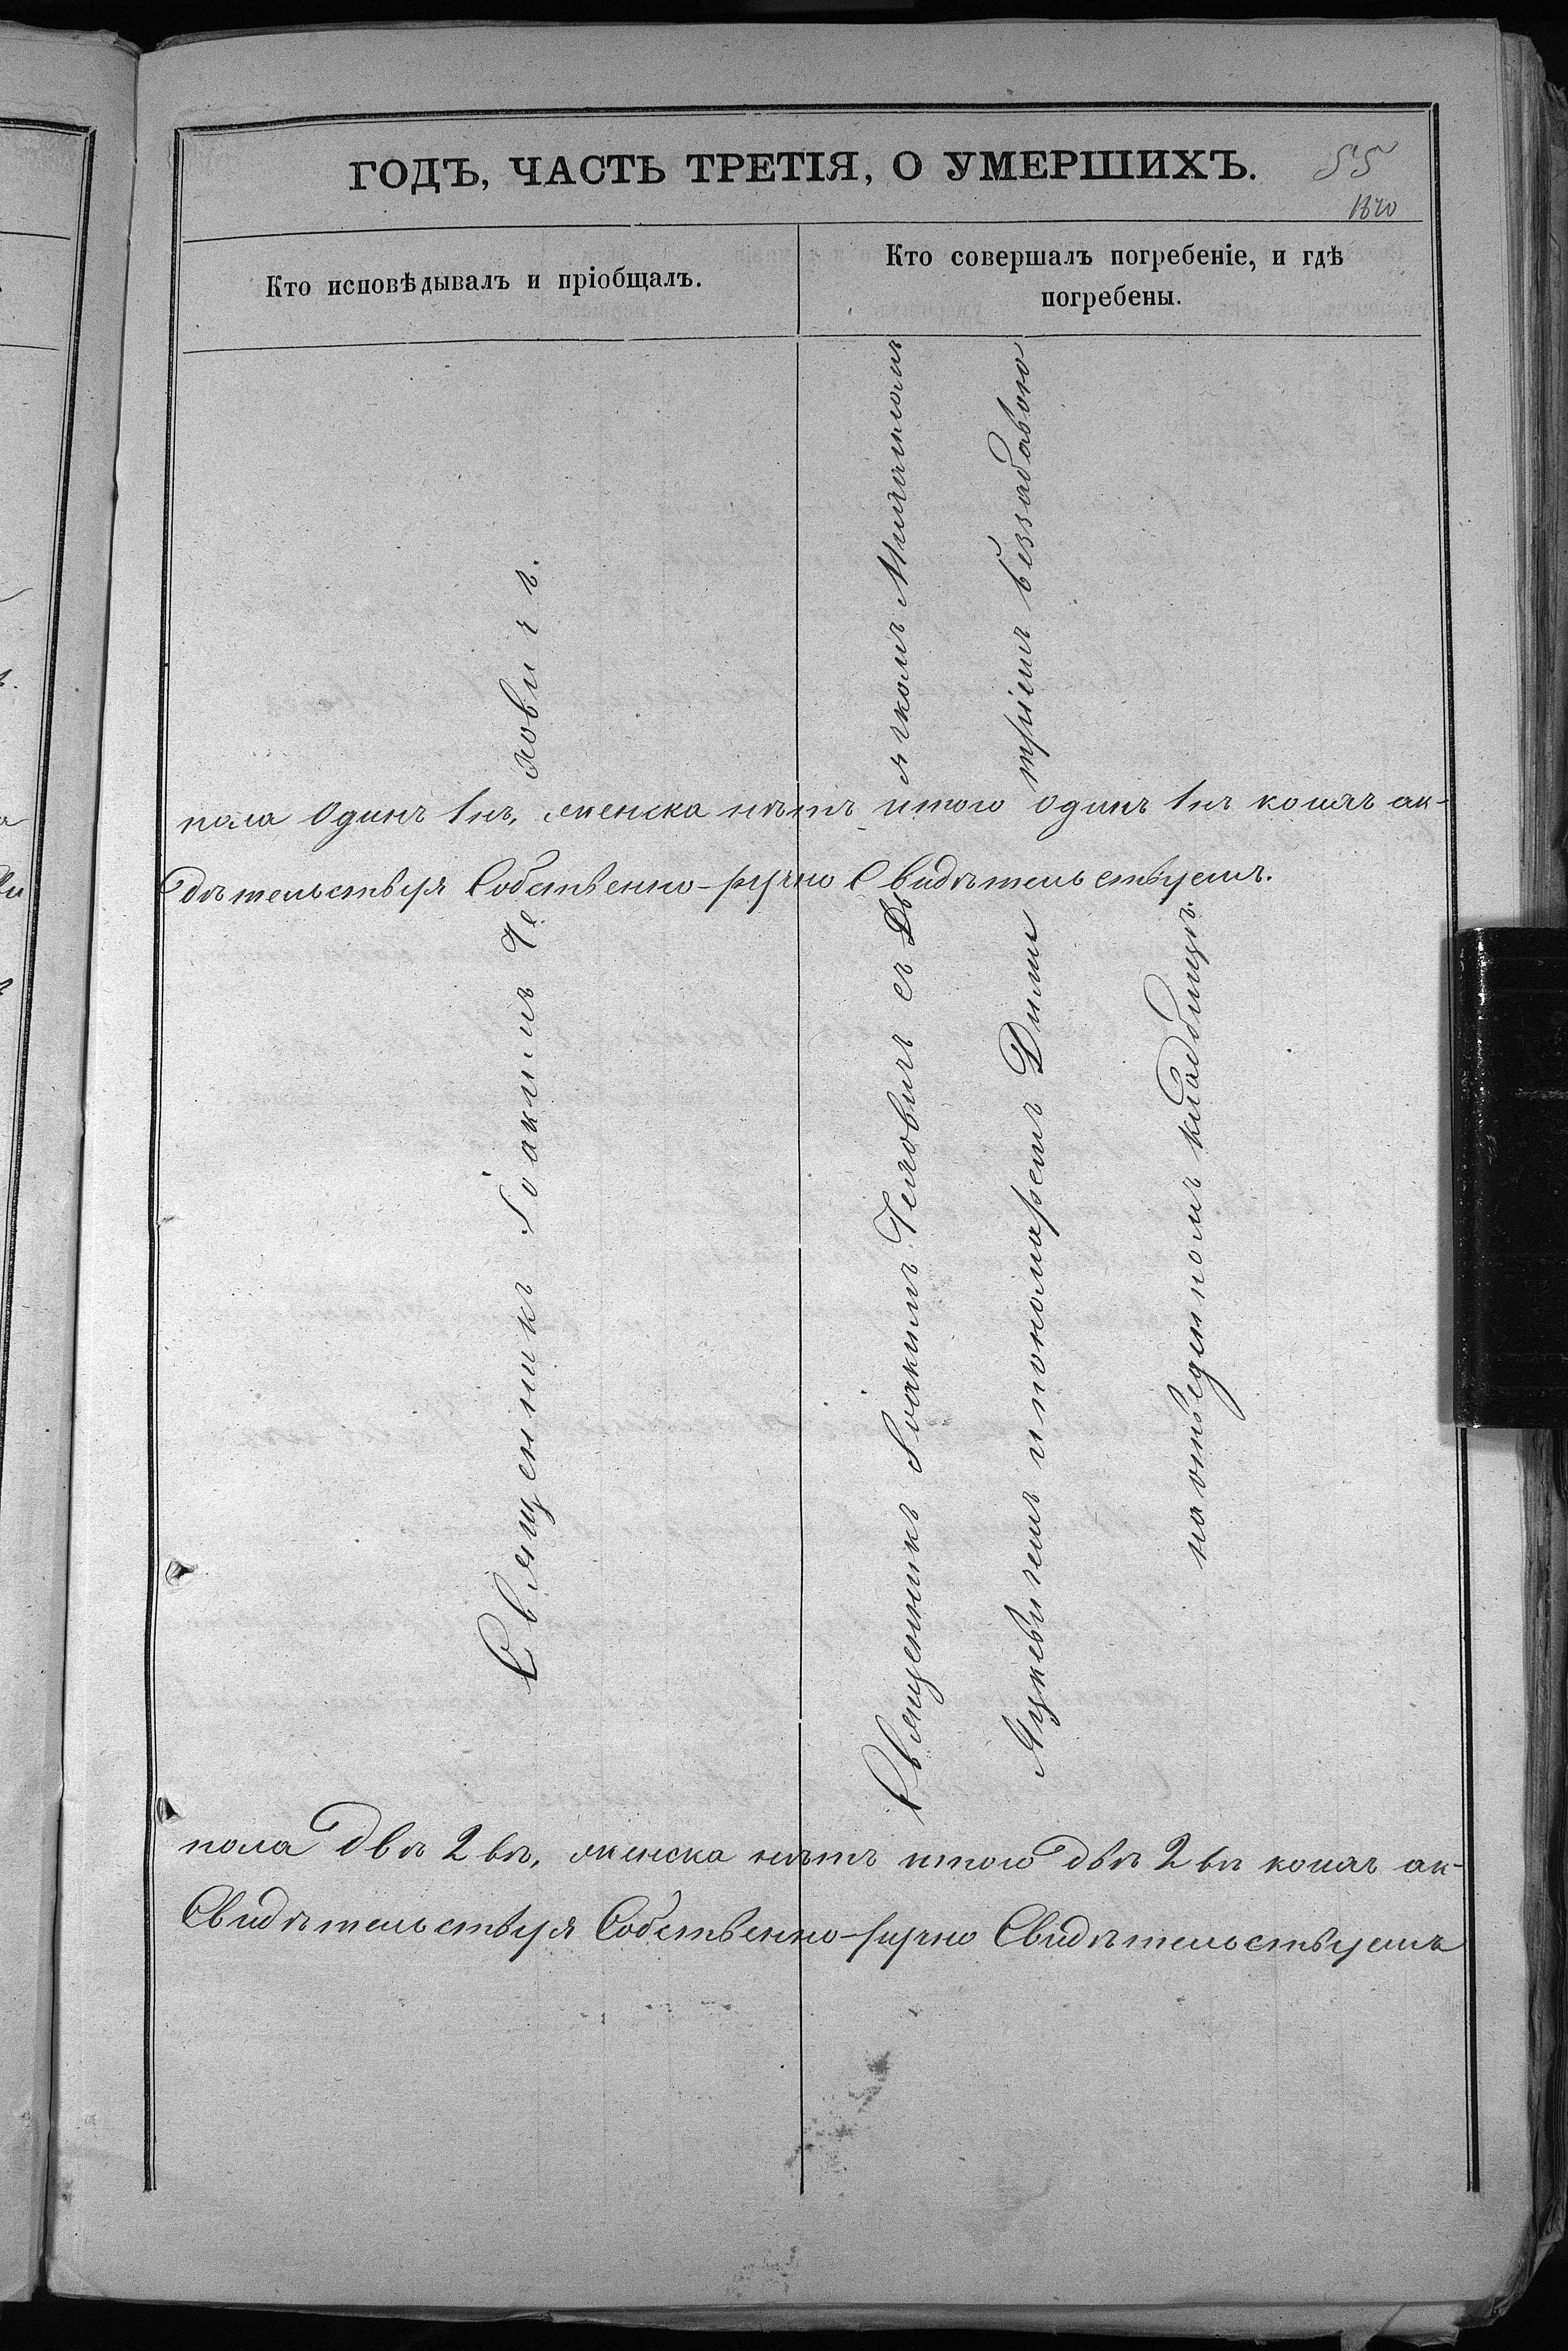 ГОДЪ, ЧАСТЬ ТРЕТІЯ, О УМЕРШИХЪ.
55
Кто исповѣдывалъ и пріобщалъ.
Кто совершалъ погребеніе, и гдѣ
погребены.
Священникъ Іоакимъ Че ловичъ.
Священникъ Іоакимъ Человичъ съ Дь ячкомъ
Яцкевичемъ и пономаремъ Дими тріемъ Беззабавою
на отведенномъ кладбищѣ.
пола одинъ 1нъ, женска нѣтъ итого одинъ 1нъ коихъ ак-
дѣтельствуя Собственно-ручно Свидѣтельствуемъ.
пола двѣ 2 вѣ, женска нѣтъ итого двѣ 2 вѣ коихъ ак-
Свидѣтельствуя Собственно-ручно Свидѣтельствуемъ